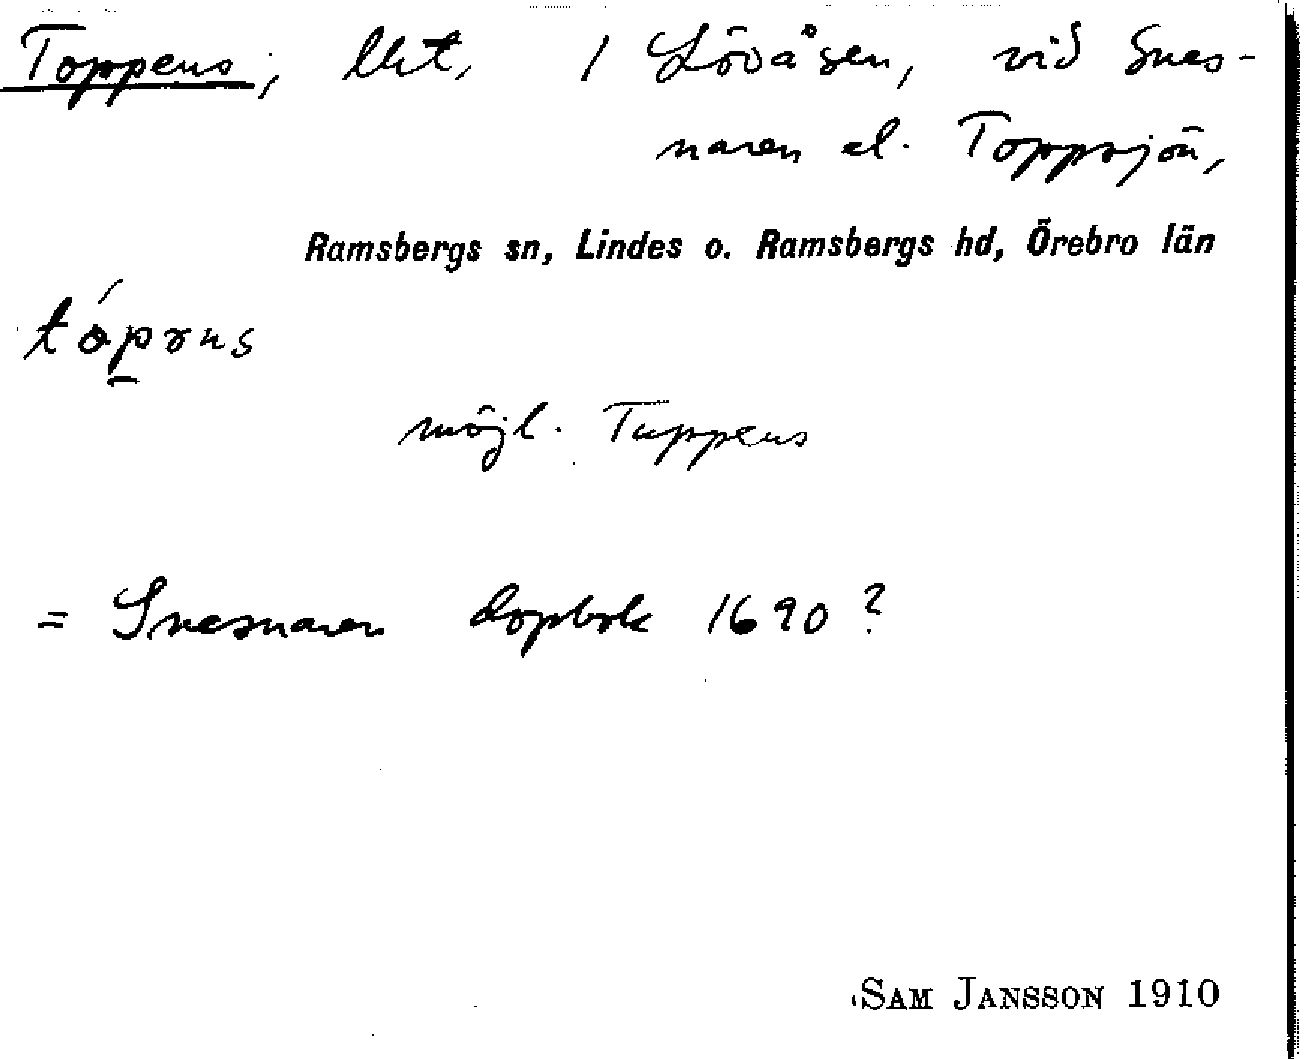 Toppens, lht, / Lövåsen, vid Snes-
naren el. Toppsjön,
Ramsbergs sn, Lindes o. Ramsbergs hd, Örebro län
möjl. Tuppens
= Snesnaren dopbok 1690?
SAM JANSSON 1910